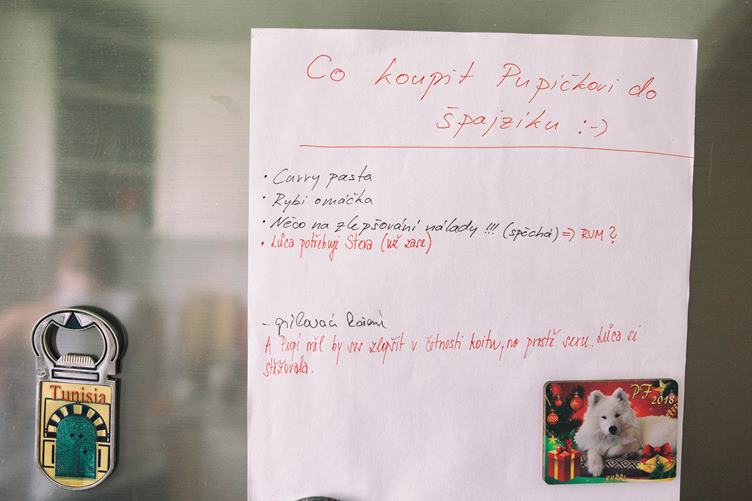 Co koupit Pupíčkovi do
špajzíku :-)
• Curry pasta
• Rybí omáčka
• Něco na zlepšování nálady !!! (spěchá) => RUM?
• Lůca potřebuje Steva (už zase)
- grilovací koření
A Pupí měl by ses zlepšit v četnosti koitu, no prostě sexu. Lůca si
stěžovala.
Tunisia
PF
2018